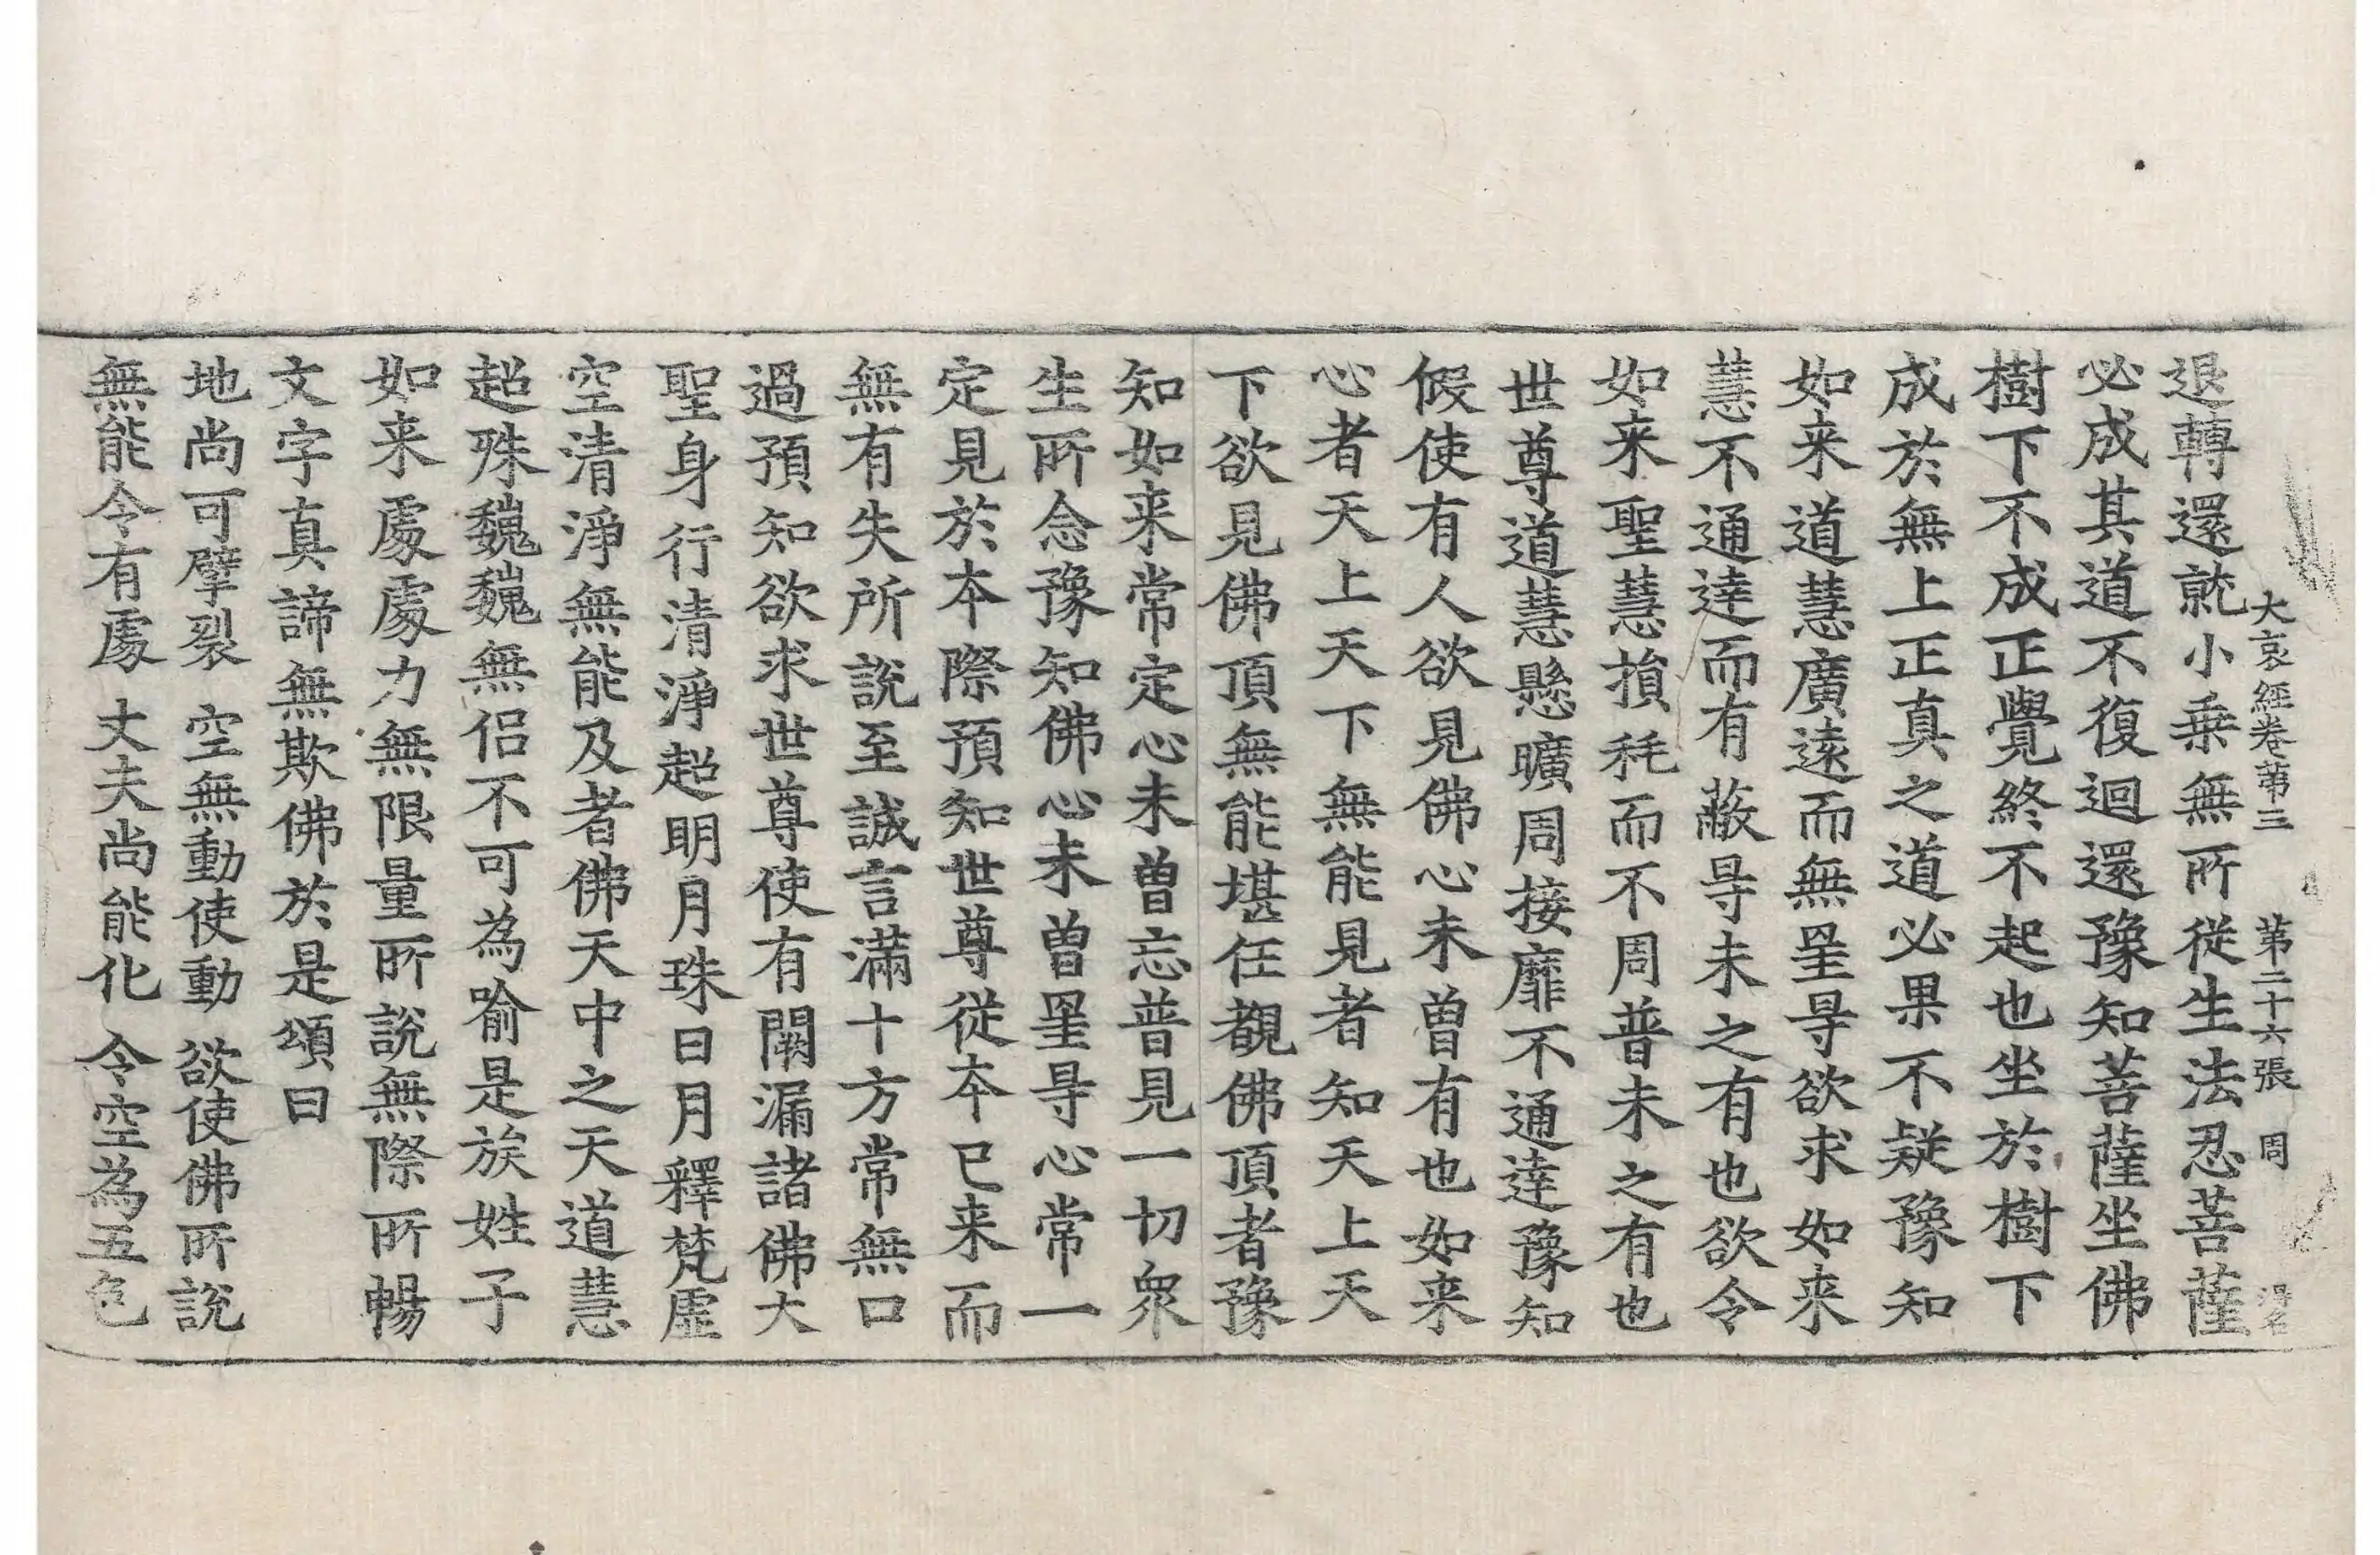 大哀經卷第三 第二十六張 周
退轉還就小乗無所從生法忍菩薩
必成其道不復迴還豫知菩薩坐佛
樹下不成正覺終不起也坐於樹下
成於無上正真之道必果不疑豫知
如来道慧廣遠而無罣㝵欲求如来
慧不通達而有蔽㝵未之有也欲令
如来聖慧損耗而不周普未之有也
世尊道慧懸曠周接靡不通達豫知
假使有人欲見佛心未曾有也如来
心者天上天下無能見者知天上天
下欲見佛頂無能堪任覩佛頂者豫
知如来常定心未曾忘普見一切衆
生所念豫知佛心未曽罣㝵心常一
定見於本際預知世尊從本已来而
無有失所說至誠言滿十方常無口
過預知欲求世尊使有闕漏諸佛大
聖身行清淨超明月珠日月釋梵虛
空清淨無能及者佛天中之天道慧
超殊巍巍無侶不可為喻是族姓子
如来處處力無限量所說無際所暢
文字真諦無欺佛於是頌曰
地尚可擘裂 空無動使動 欲使佛所說
無能令有處 丈夫尚能化 令空為五色